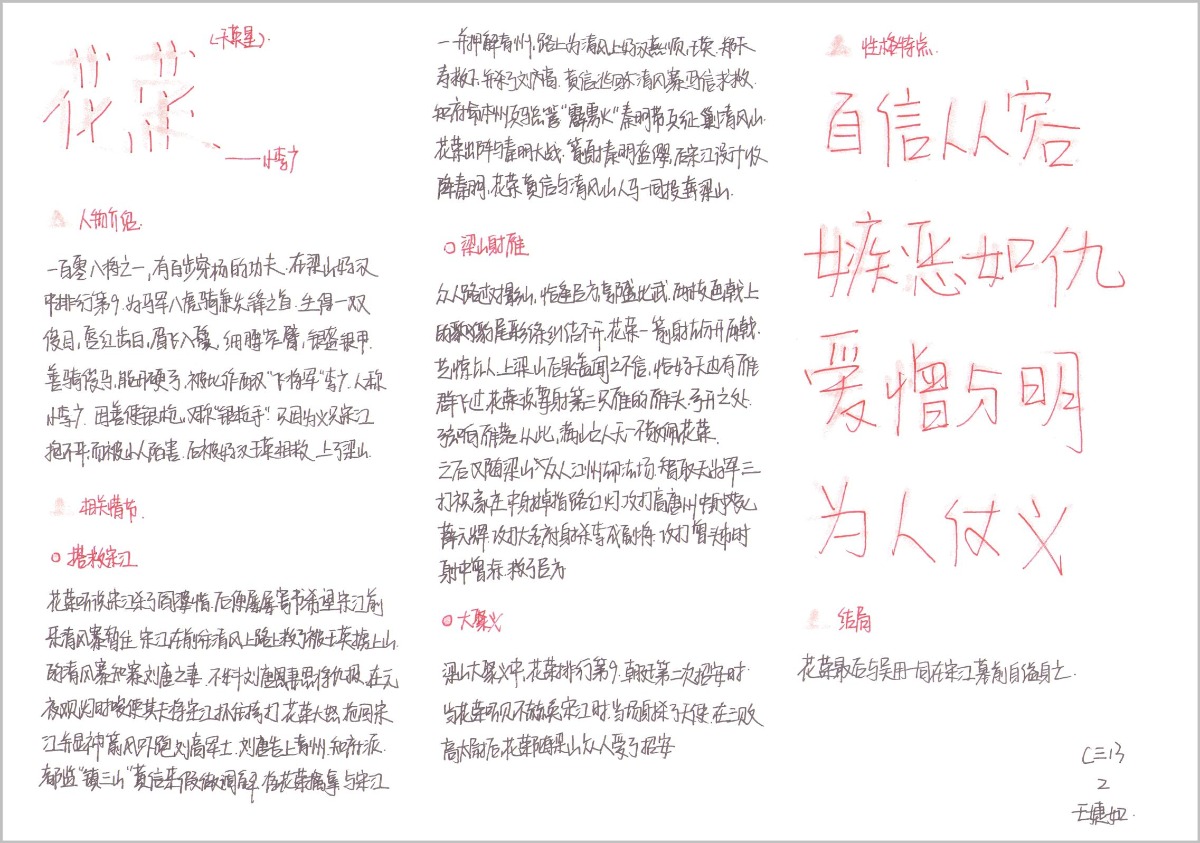 (天英星)
花荣
——小李广
人物介绍
一百零八将之一,有百步穿杨的功夫.在梁山好汉
中排行第9.为马军八虎骑兼先锋之首.生得一双
俊目,唇红齿白,眉飞入鬓,细腰窄臂,银盔銀甲
善骑俊马,能开硬弓.被比作西汉"飞将军"李广.人称
小李广.因善使银枪,又称"银枪手".又因为义兄宋江
抱不平而被小人陷害.后被好汉王英相救,上了梁山
相关情节
搭救宋江
花荣听说宋江杀了阎婆惜.后便屡屡寄书希望宋江前
来清风寨暂住.宋江在前往清风上路上救了被王英掳上山
的清风寨知寨刘高之妻.不料刘高恩将仇报.在元
夜观灯时唆使其夫将宋江抓住拷打.花荣大怒,抢回宋
江.并显神箭吓跑刘高军士.刘高告上青州.知府派
都监"镇三山"黄信来假做调解.将花荣擒拿与宋江
一并押解青州,路上为清风上好汉燕顺,王英.郑天
寿救下.并杀了刘高.黄信逃回清风寨写信求救.
知府命青州兵马总管"霹雳火"秦明带兵征剿清风山
花荣出阵与秦明大战.箭射秦明盔缨.后宋江设计收
降秦明,花荣黄信与清风山人马一同投奔梁山.
梁山射雁
众人路过对影山,恰逢吕方郭盛比武,两枝画戟上
的豹尾彩绦纠结不开,花荣一箭射去分开两戟.
艺惊众人.上梁山后晁盖闻之不信,恰好天边有雁
群飞过.花荣淡要射第三只雁的雁头.弓开之处.
弦响雁落.从此,梁山之人无一不敬佩花荣.
之后又随梁山众人江州劫法场.智取无为军.三
打祝家庄中射掉指路红灯.攻打高唐州中射死
薛元辉.攻打大名府射杀李成副将.攻打曾头市时
射中曾涂.救了吕方
大聚义
梁山大聚义中,花荣排行第9.朝廷第一次招安时.
当花荣听见不赦免宋江时.当场射杀了天使.在三败
高太尉后,花荣随梁山众人受了招安
性格特点
自信从容
嫉恶如仇
爱憎分明
为人仗义
结局
花荣最后与吴用一同在宋江墓前自缢身亡.
C三13
2